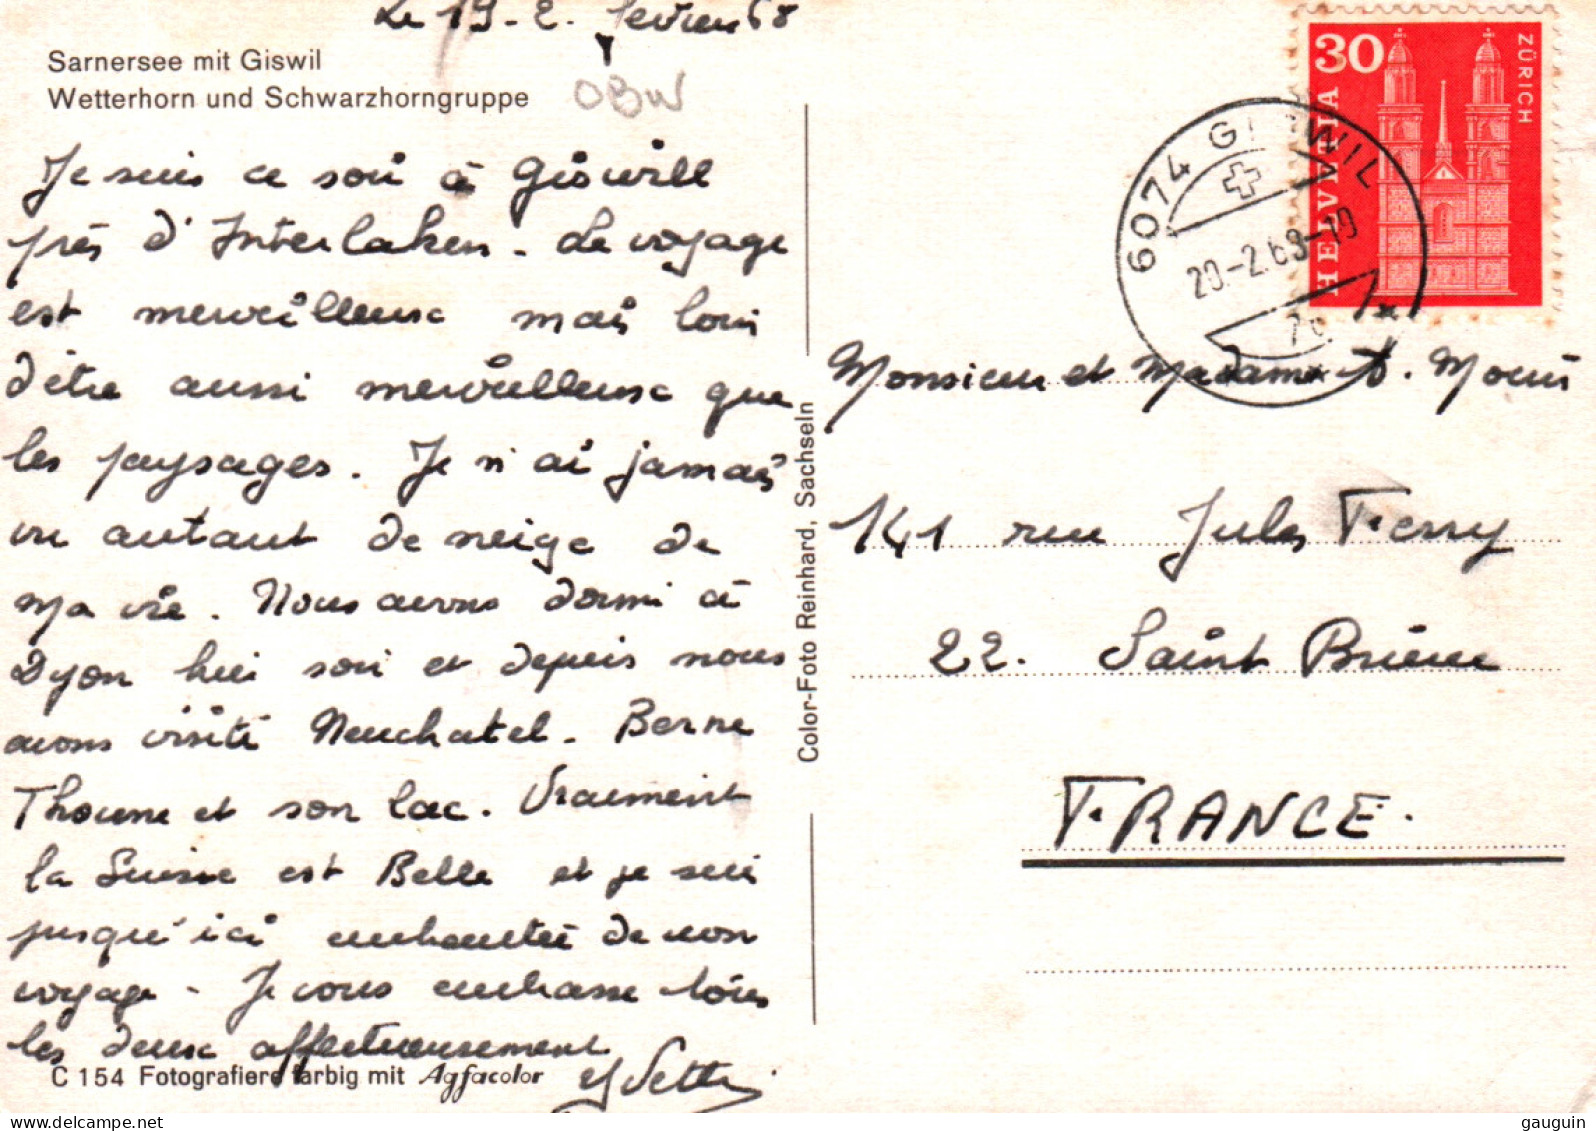 Le 19-2. fevrier 68
Sarnersee mit Giswil
Wetterhorn und Schwarzhorngruppe
OBW
Je suis ce soir à Giswill
près d'Interlaken. Le voyage
est merveilleux mais loin
d'être aussi merveilleux que
les paysages. Je n'ai jamais
vu autant de neige de
ma vie. Nous avons dormi à
Dyon hier soir et depuis nous
avons visité Neuchatel. Berne
Thoune et son lac. Vraiment
la Suisse est Belle et je suis
jusqu'ici enchantée de mon
voyage. Je vous embrasse tous
les deux affectueusement
Yvette
C 154 Fotografiere farbig mit Agfacolor
Color-Foto Reinhard, Sachseln
30
HELVETIA
ZÜRICH
6074 GISWIL
20.-2.68-19
Monsieur et Madame
141 rue Jules Ferry
22. Saint Brieuc
FRANCE.
gauguin